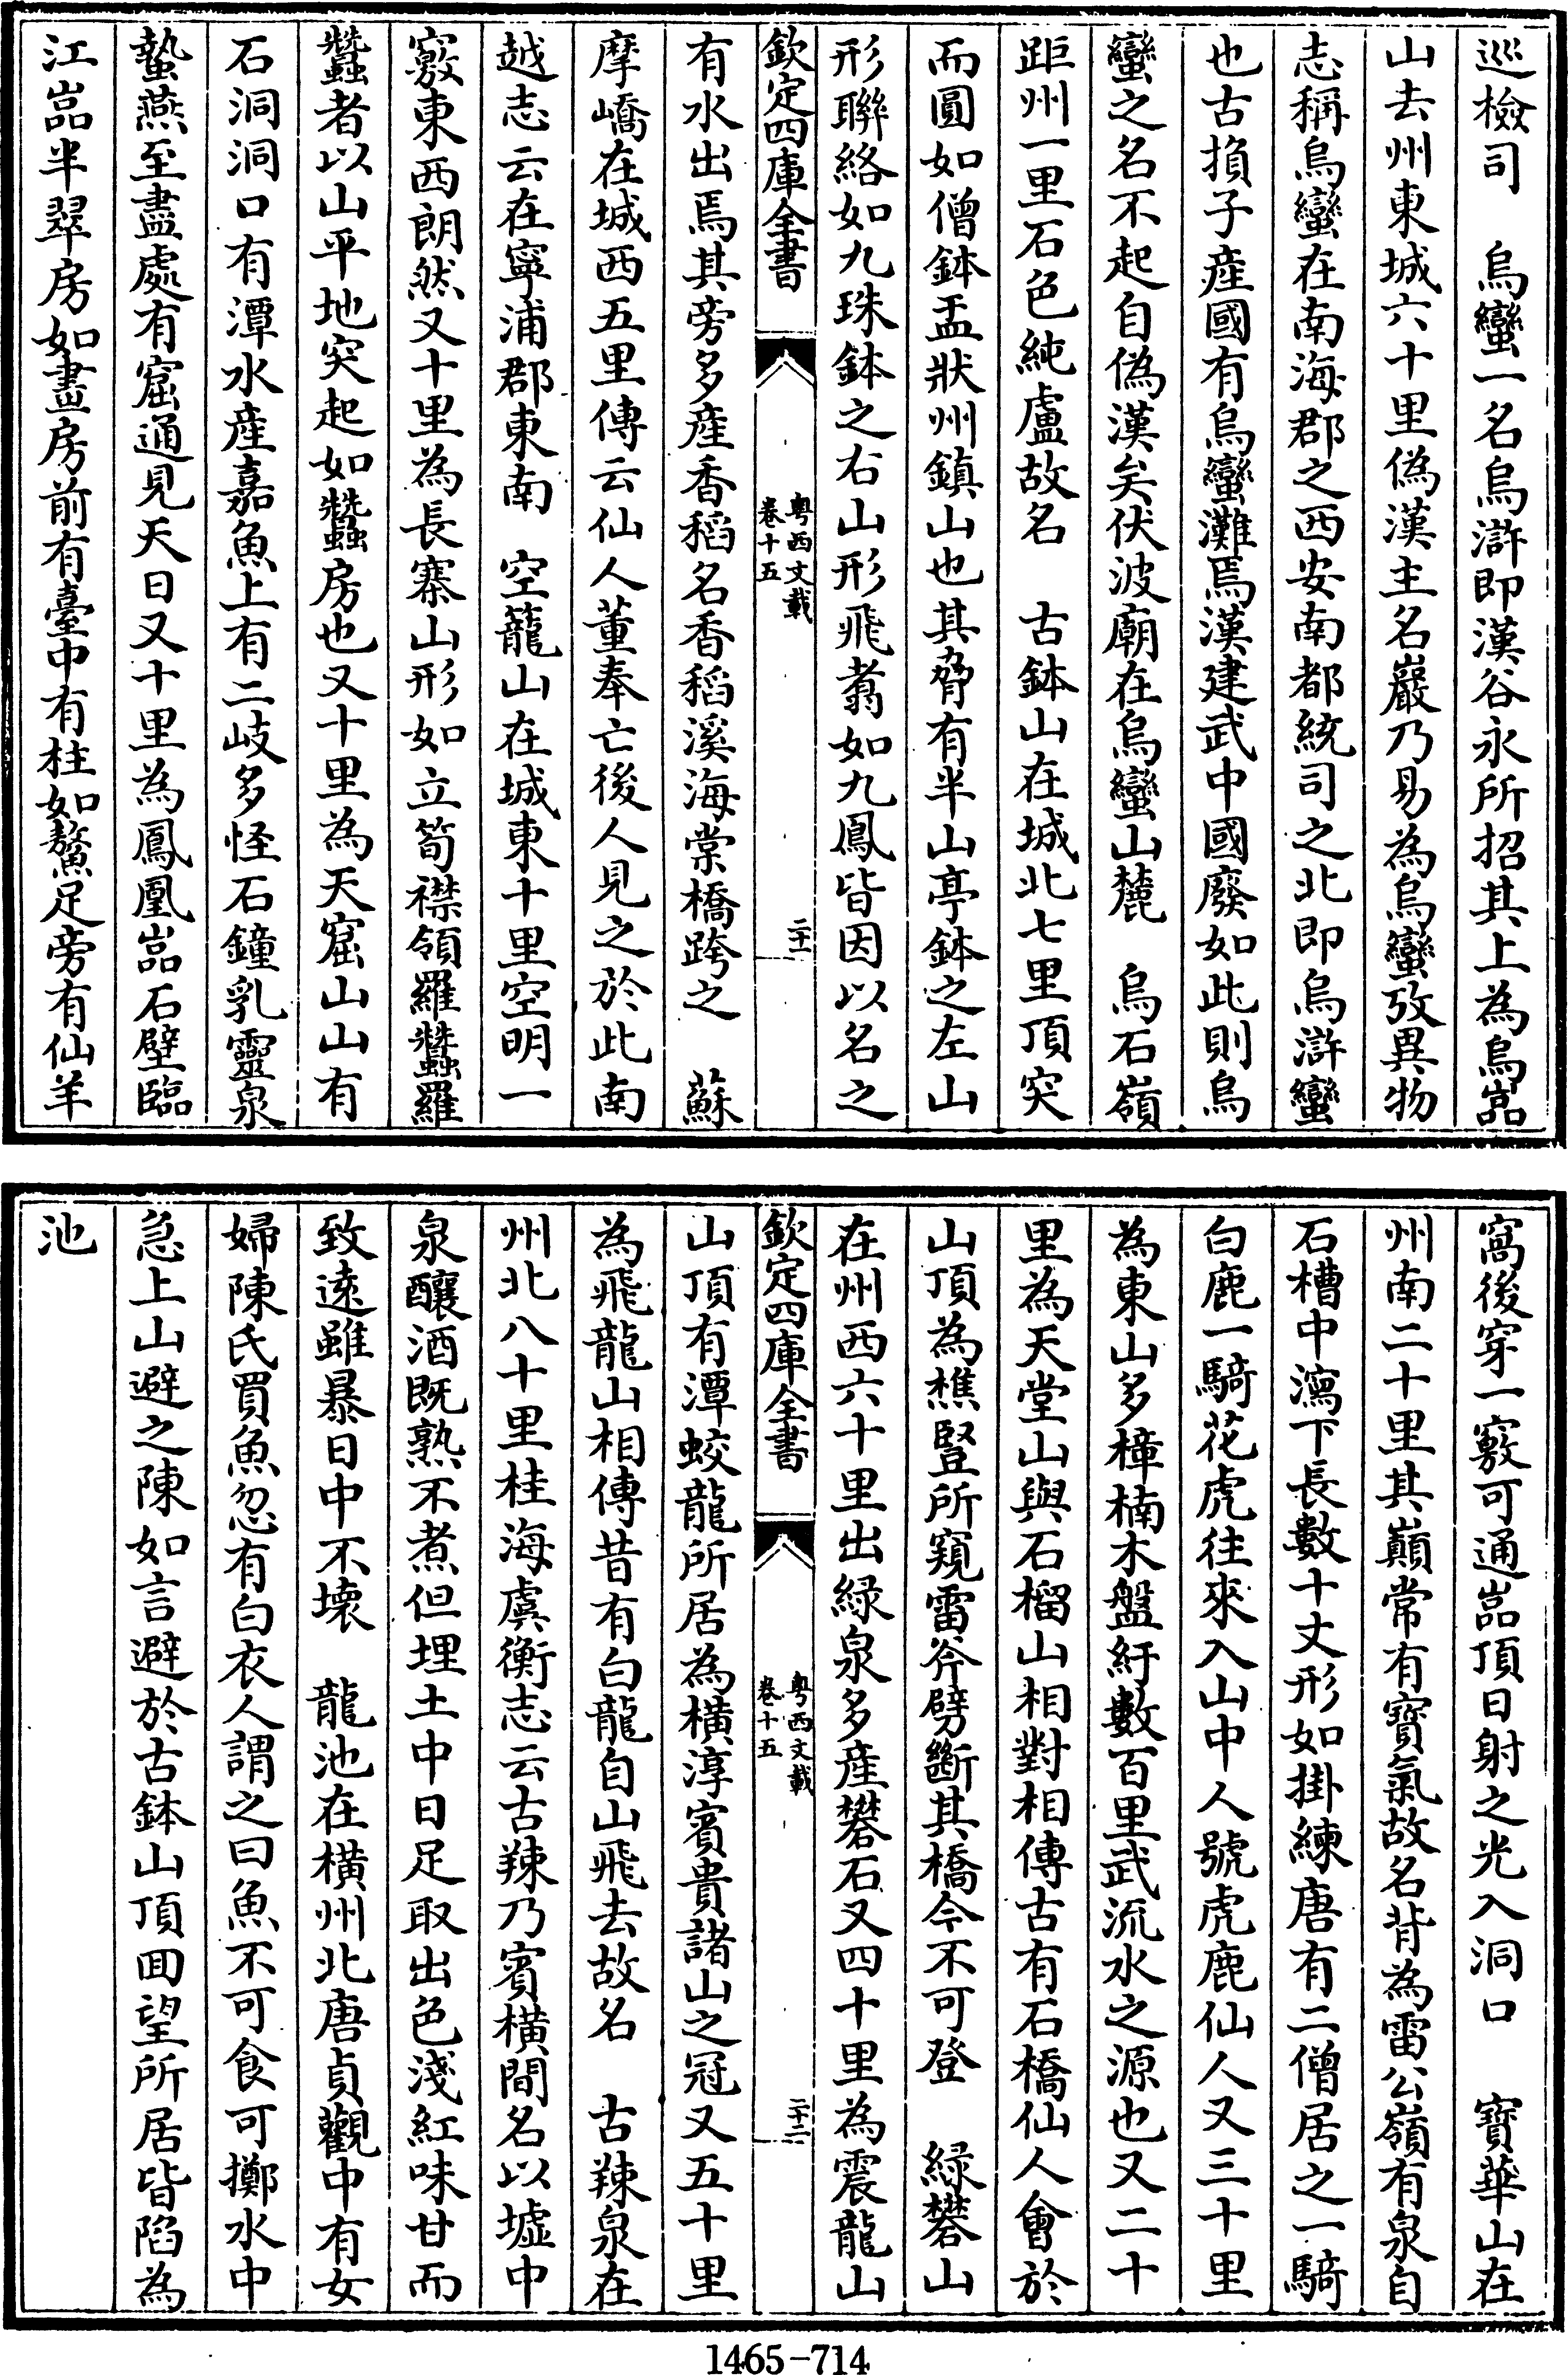 巡檢司　烏蠻一名烏滸即漢谷永所招其上為烏嵓
山去州東城六十里偽漢主名巖乃易為烏蠻攷異物
志稱烏蠻在南海郡之西安南都統司之北即烏滸蠻
也古損子產國有烏蠻灘焉漢建武中國廢如此則烏
蠻之名不起自偽漢矣伏波廟在烏蠻山麓　烏石嶺
距州一里石色純盧故名　古鉢山在城北七里頂突
而圓如僧鉢盂狀州鎮山也其脅有半山亭鉢之左山
形聯絡如九珠鉢之右山形飛翥如九鳳皆因以名之
欽定四庫全書
粤西文載
卷十五
二十一
有水出焉其旁多產香稻名香稻溪海棠橋跨之　蘇
摩嶠在城西五里傳云仙人董奉亡後人見之於此南
越志云在寧浦郡東南　空籠山在城東十里空明一
竅東西朗然又十里為長寨山形如立筍襟領羅蠶羅
蠶者以山平地突起如蠶房也又十里為天窟山山有
石洞洞口有潭水產嘉魚上有二岐多怪石鐘乳靈泉
蟄燕至盡處有窟通見天日又十里為鳳凰嵓石壁臨
江嵓半翠房如畫房前有臺中有柱如鰲足旁有仙羊
窩後穿一竅可通嵓頂日射之光入洞口　寶華山在
州南二十里其巔常有寶氣故名背為雷公嶺有泉自
石槽中瀉下長數十丈形如掛練唐有二僧居之一騎
白鹿一騎花虎往來入山中人號虎鹿仙人又三十里
為東山多樟楠木盤紆數百里武流水之源也又二十
里為天堂山與石榴山相對相傳古有石橋仙人會於
山頂為樵豎所窺雷斧劈斷其橋今不可登　緑礬山
在州西六十里出緑泉多產礬石又四十里為震龍山
欽定四庫全書
粤西文載
卷十五
二十二
山頂有潭蛟龍所居為橫淳賓貴諸山之冠又五十里
為飛龍山相傳昔有白龍自山飛去故名　古辣泉在
州北八十里桂海虞衡志云古辣乃賓橫間名以墟中
泉釀酒既熟不煮但埋土中日足取出色淺紅味甘而
致遠雖暴日中不壞　龍池在橫州北唐貞觀中有女
婦陳氏買魚忽有白衣人謂之曰魚不可食可擲水中
急上山避之陳如言避於古鉢山頂囬望所居皆陷為
池
1465-714